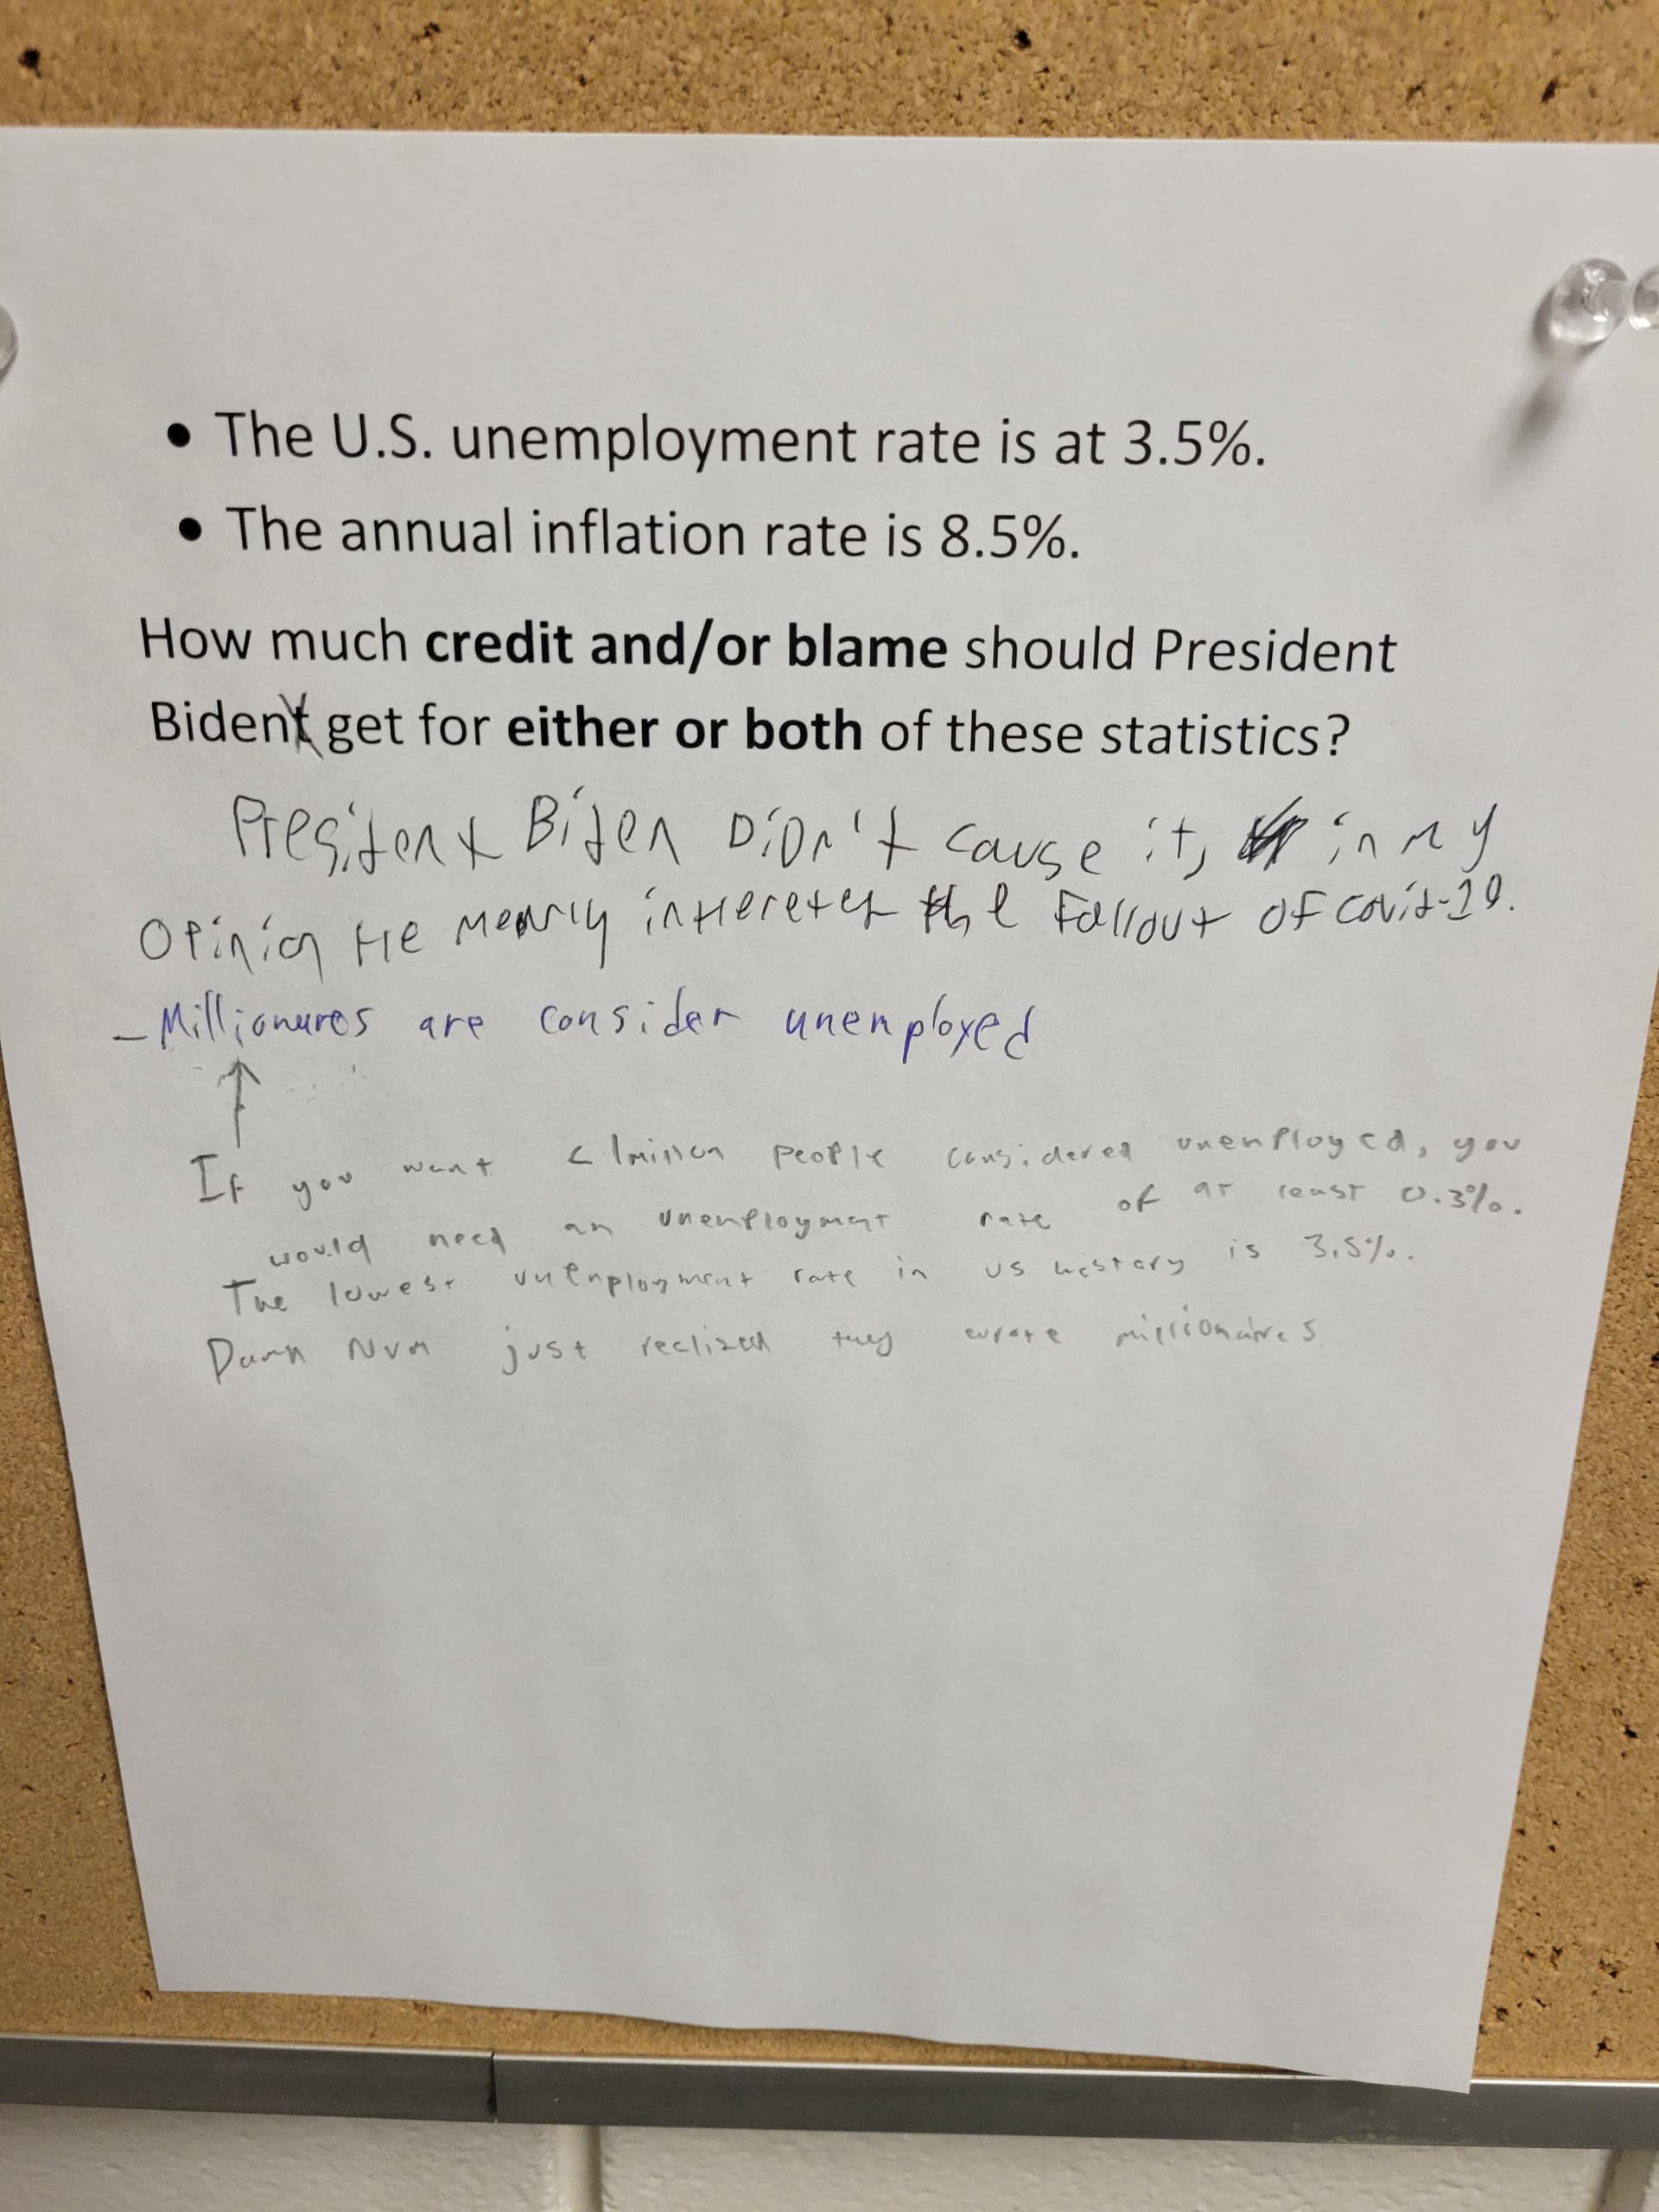 • The U.S. unemployment rate is at 3.5%.
• The annual inflation rate is 8.5%.
How much credit and/or blame should President
Bident get for either or both of these statistics?
President Biden Didn't cause it, in my
Opinion He mearly inhereted the Fallout of covid-19.
- Millionares are consider unemployed
If you want < 1 million people considered unemployed, you
would need an unemployment rate of at least 0.3%.
The lowest unemployment rate in us history is 3.5%.
Damn Nvm just realized they wrote millionaires